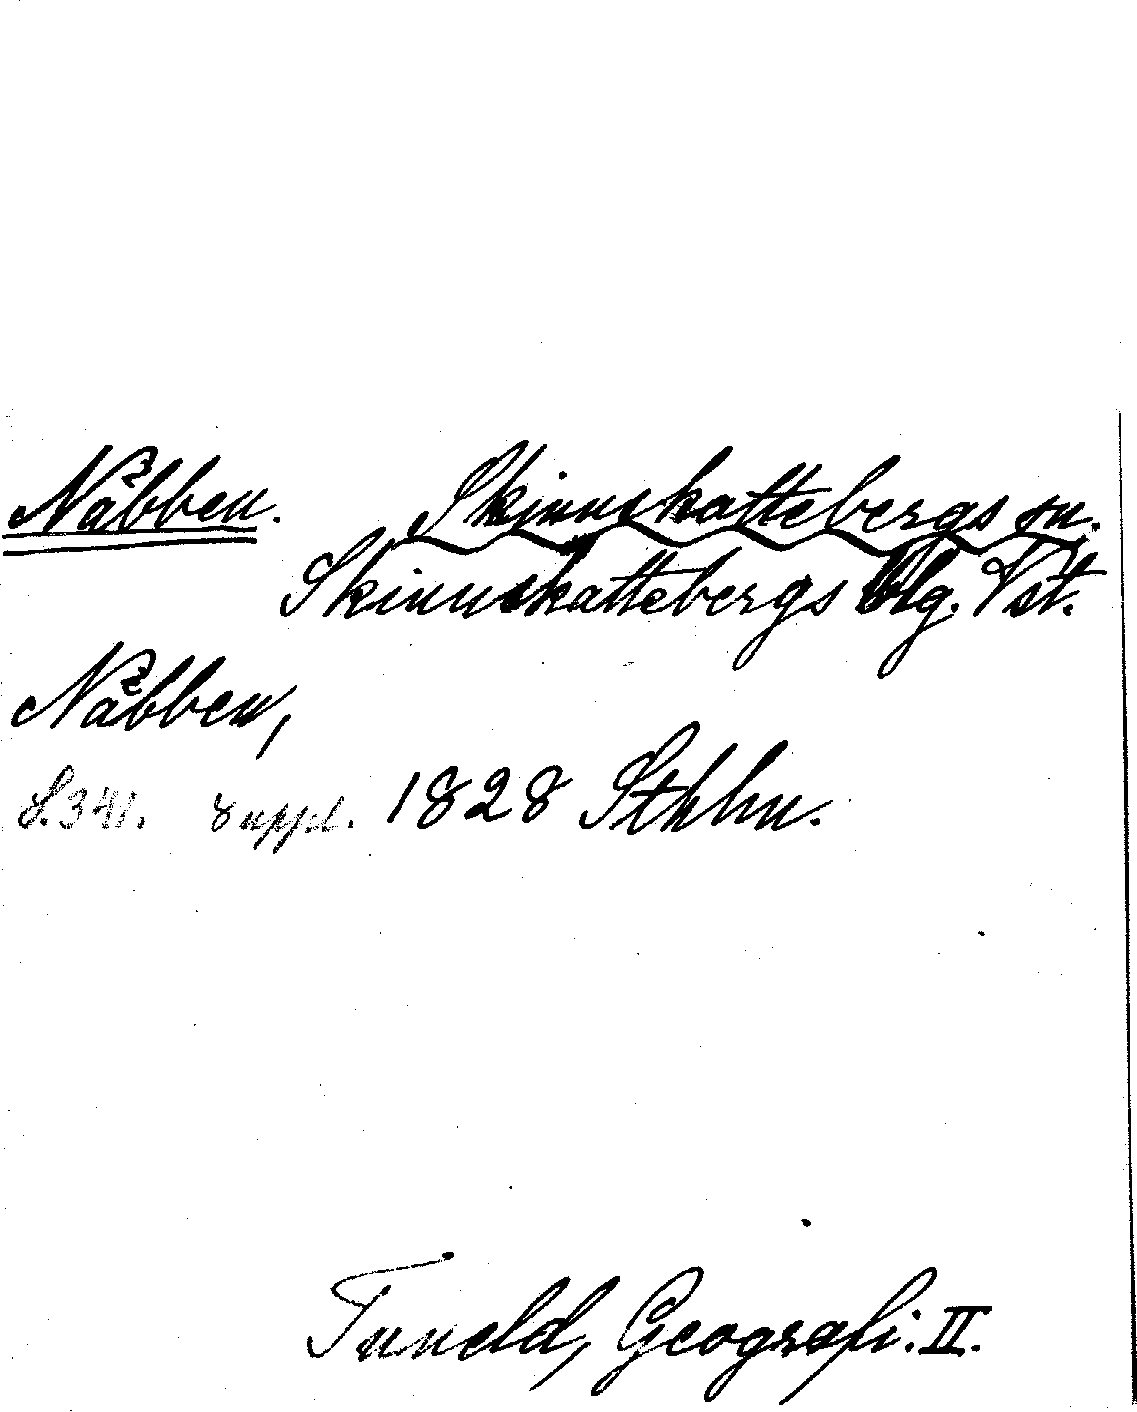 Nåbben. Skinnskattebergs sn.
Skinnskattebergs blg. Vst.
Nåbben,
S. 341. Suppl. 1828 Sthlm.
Tuneld, Geografi. II.